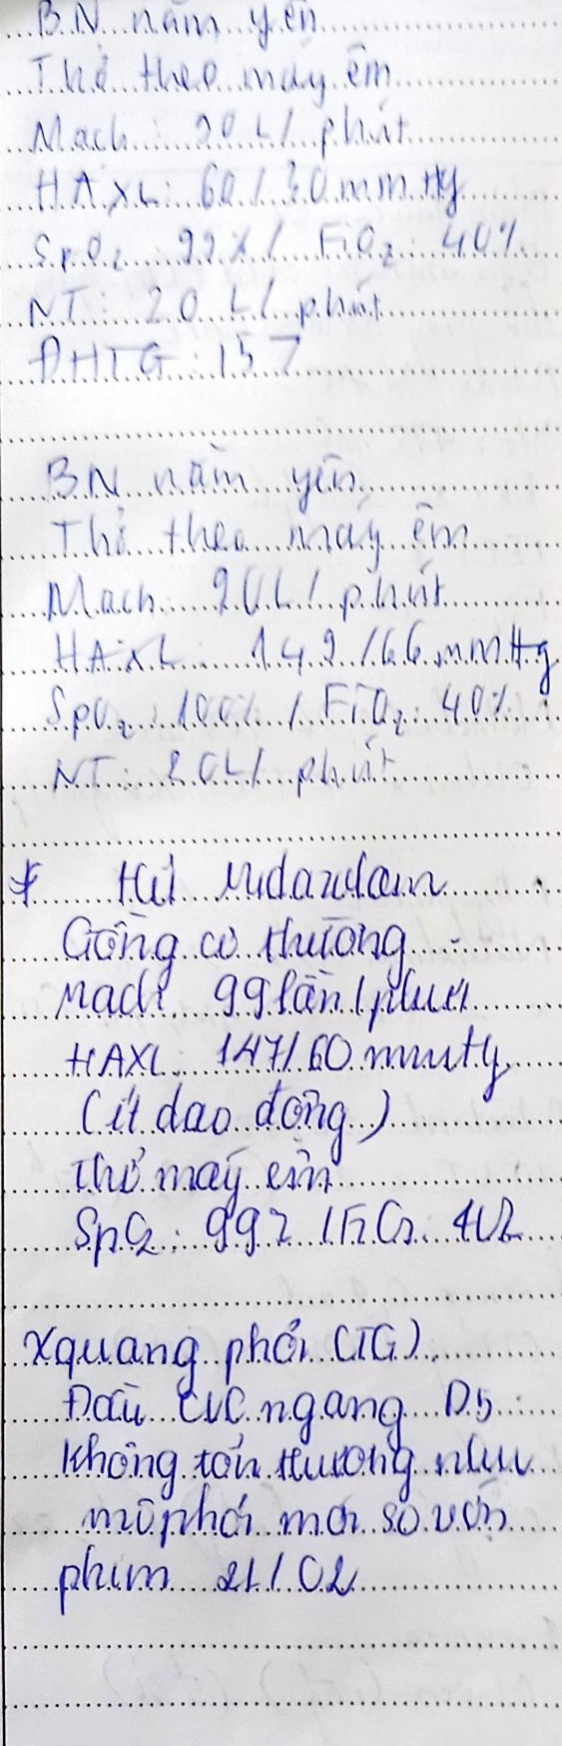 BN nằm yên
Thở theo máy êm
Mạch: 90 L/phút
HAXL: 60/30 mmHg
SpO2 99% / FiO2: 40%
NT: 20 L/phút
ĐHTG: 157
BN nằm yên
Thở theo máy êm
Mạch: 90L/phút
HAXL 149/66 mmHg
SpO2: 100% / FiO2: 40%
NT: 20L/phút
* Hết Midazolam
Gồng cơ thường
Mạch 99 lần/phút
HAXL: 147/60 mmHg
(ít dao động)
Thở máy êm
SpO2: 99% / FiO2: 40%
Xquang phổi (TG)
Đầu CVC ngang D5
Không tổn thương nhu
mô phổi mới so với
phim 21/02